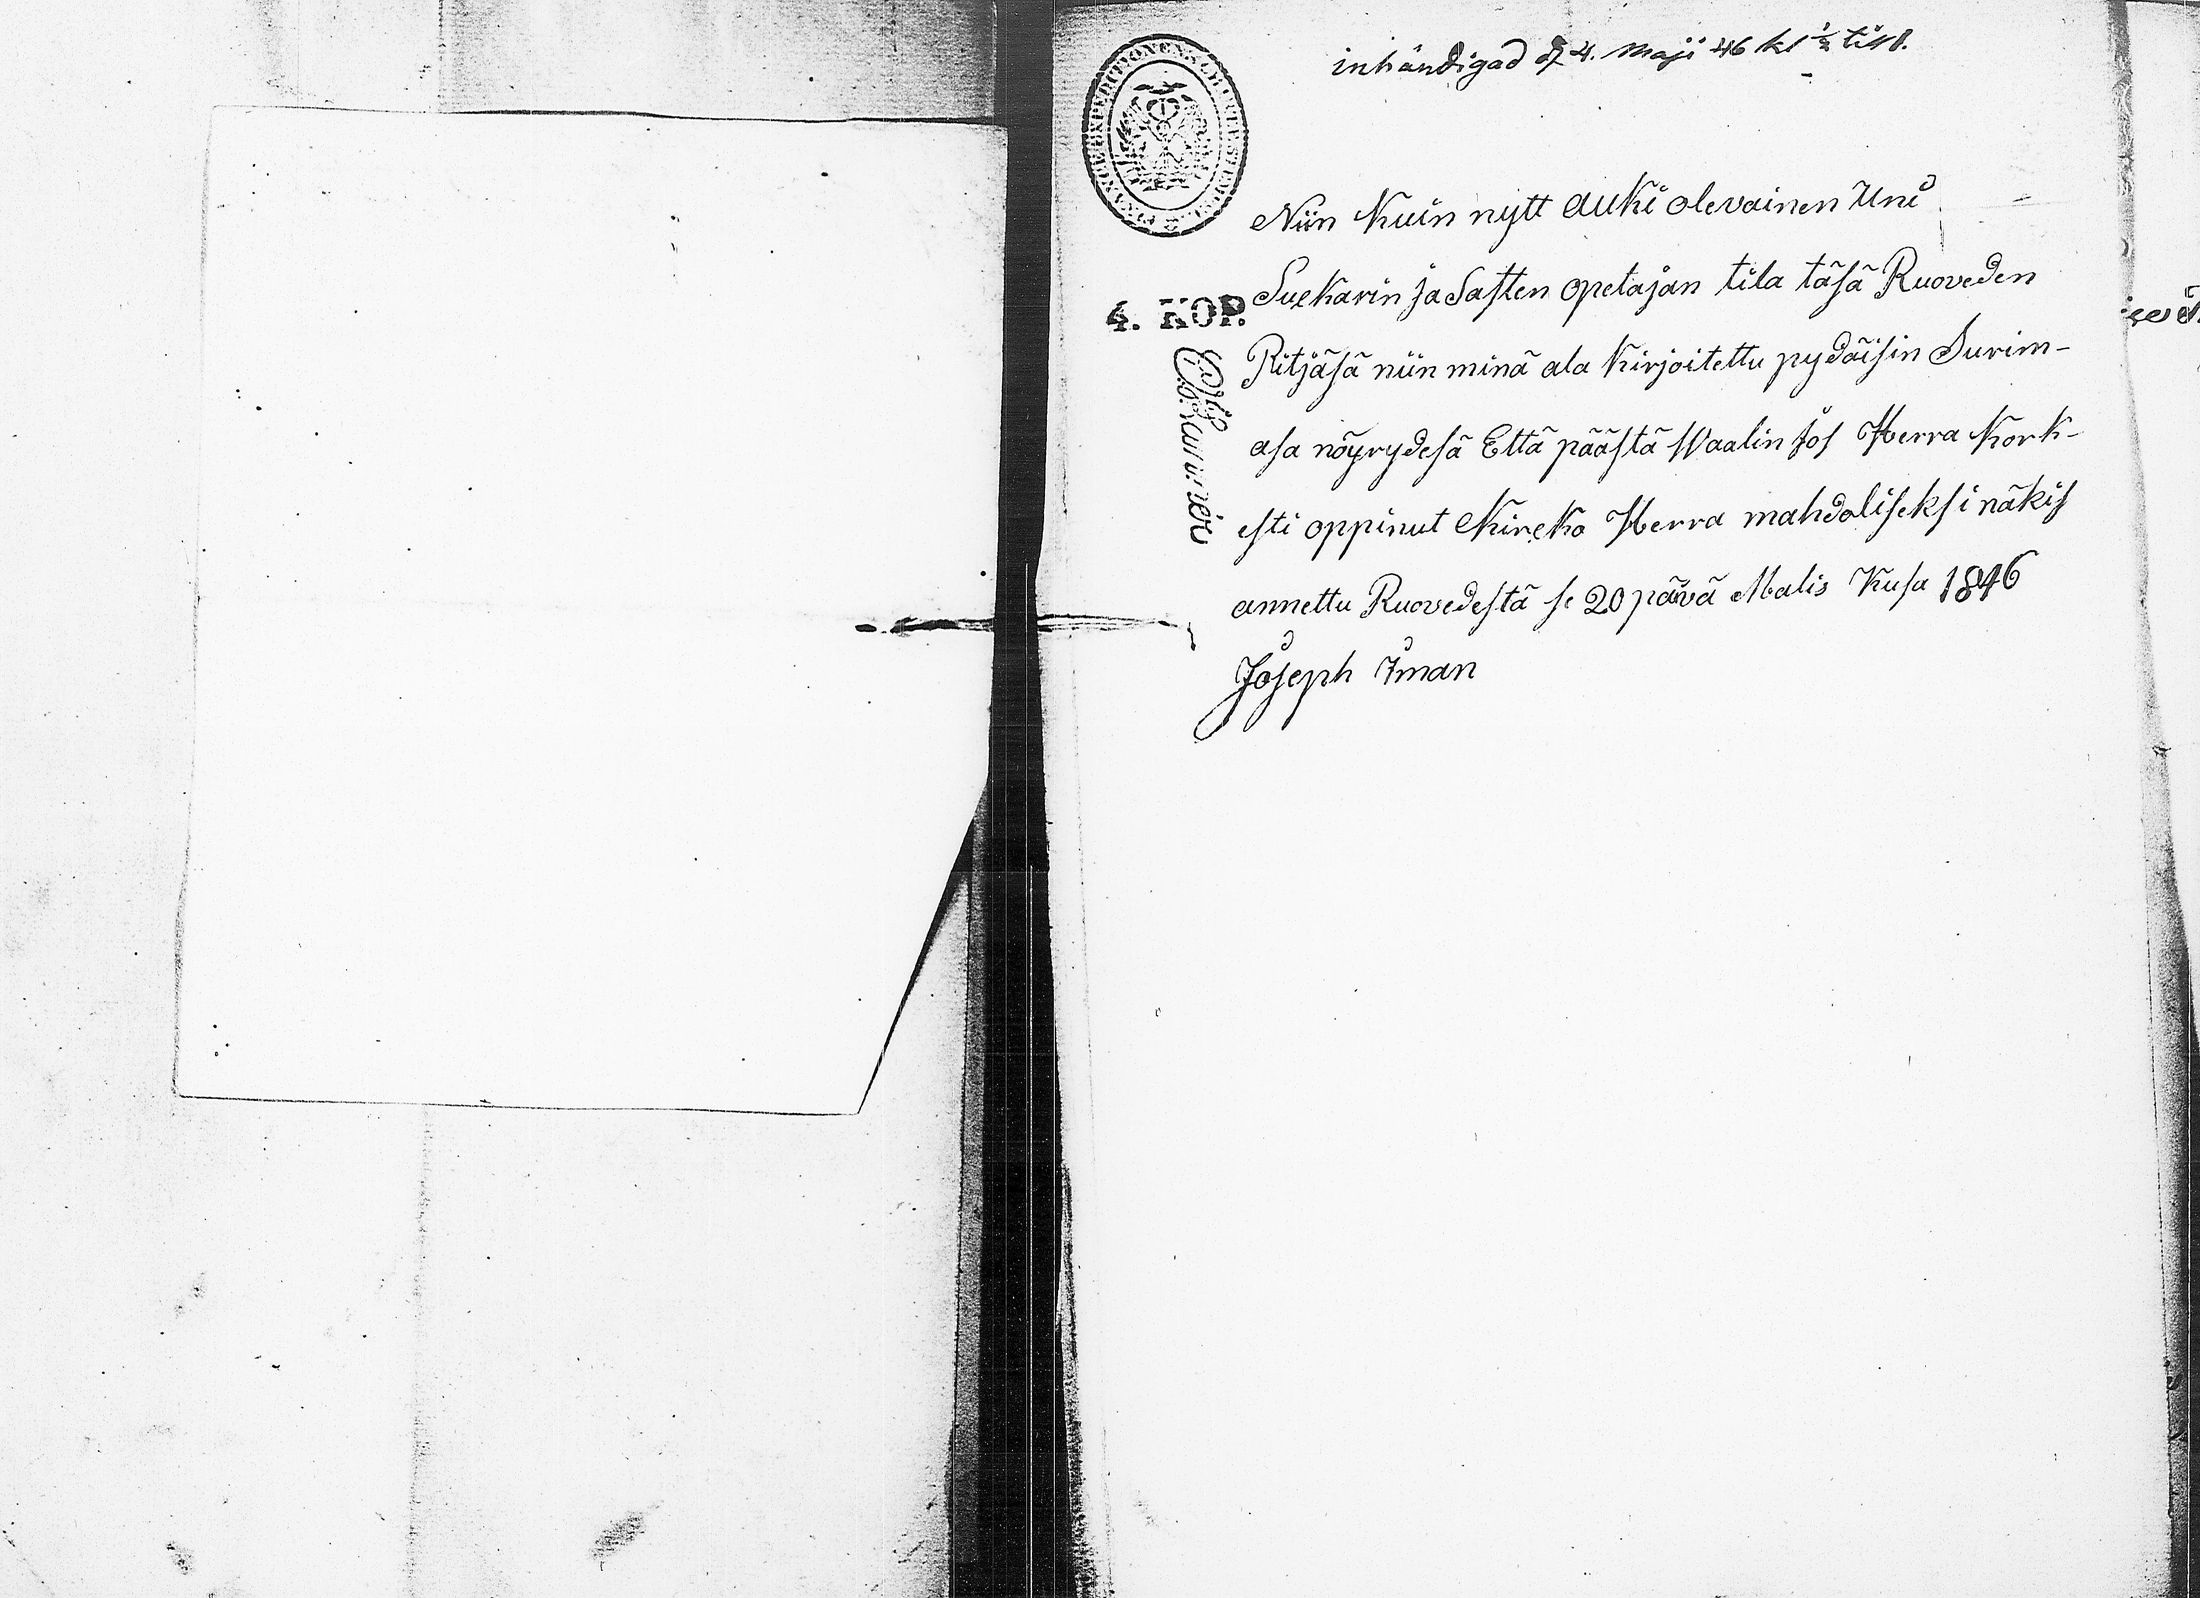 inhändigad d 4. Maji 46 kl ½ till 8.
FINANCE EXPEDITIONENS CHARTÆ STEMPEL
4. KOP.
Niin Kuin nytt auki olevainen Uni
Luckarin ja Lasten opetajan tila täsä Ruoveden
Pitjäsä niin minä ala Kirjoitettu pydäisin Surim-
asa nöyrydesä Että päästä Waalin jos Herra Kork-
esti oppinut Kircko Herra mahdoliseksi näkis
annettu Ruovedestä se 20 pävä Malis Kusa 1846
Joseph Iman